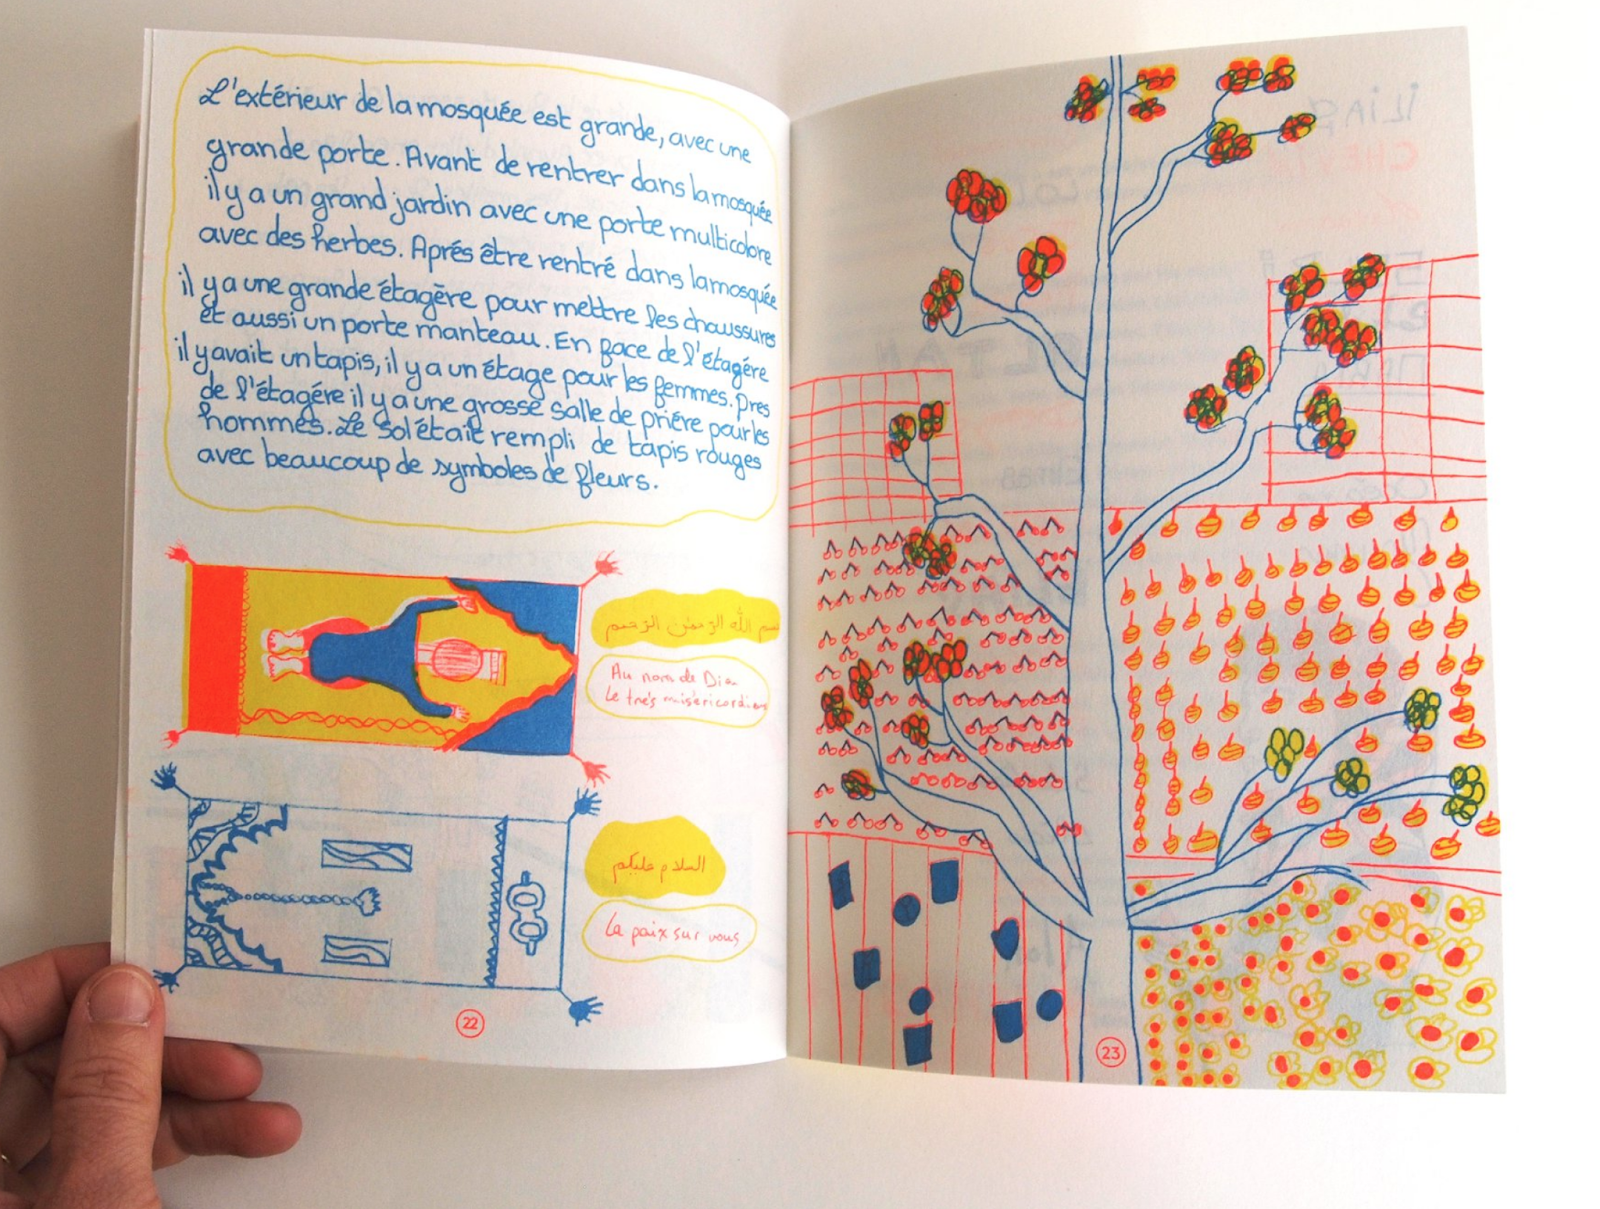 L'extérieur de la mosquée est grande, avec une
grande porte. Avant de rentrer dans la mosquée
il y a un grand jardin avec une porte multicolore
avec des herbes. Aprés être rentré dans la mosquée
il y a une grande étagère pour mettre les chaussures
et aussi un porte manteau. En face de l'étagére
il y avait un tapis, il y a un étage pour les femmes. Pres
de l'étagére il y a une grosse salle de priére pour les
hommes. Le sol était rempli de tapis rouges
avec beaucoup de symboles de fleurs.
بسم الله الرحمن الرحيم
Au nom de Dieu
Le trés miséricordieux
السلام عليكم
La paix sur vous
22
23